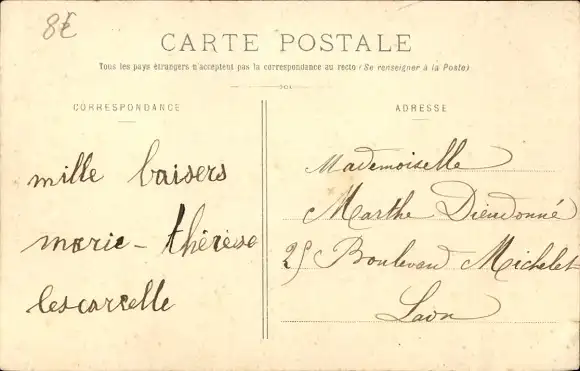 8€
CARTE POSTALE
Tous les pays étrangers n'acceptent pas la correspondance au recto (Se renseigner à la Poste)
CORRESPONDANCE
ADRESSE
mille baisers
marie-thérèse
Lescarcelle
Mademoiselle
Marthe Dieudonné
25 Boulevard Michelet
Laon